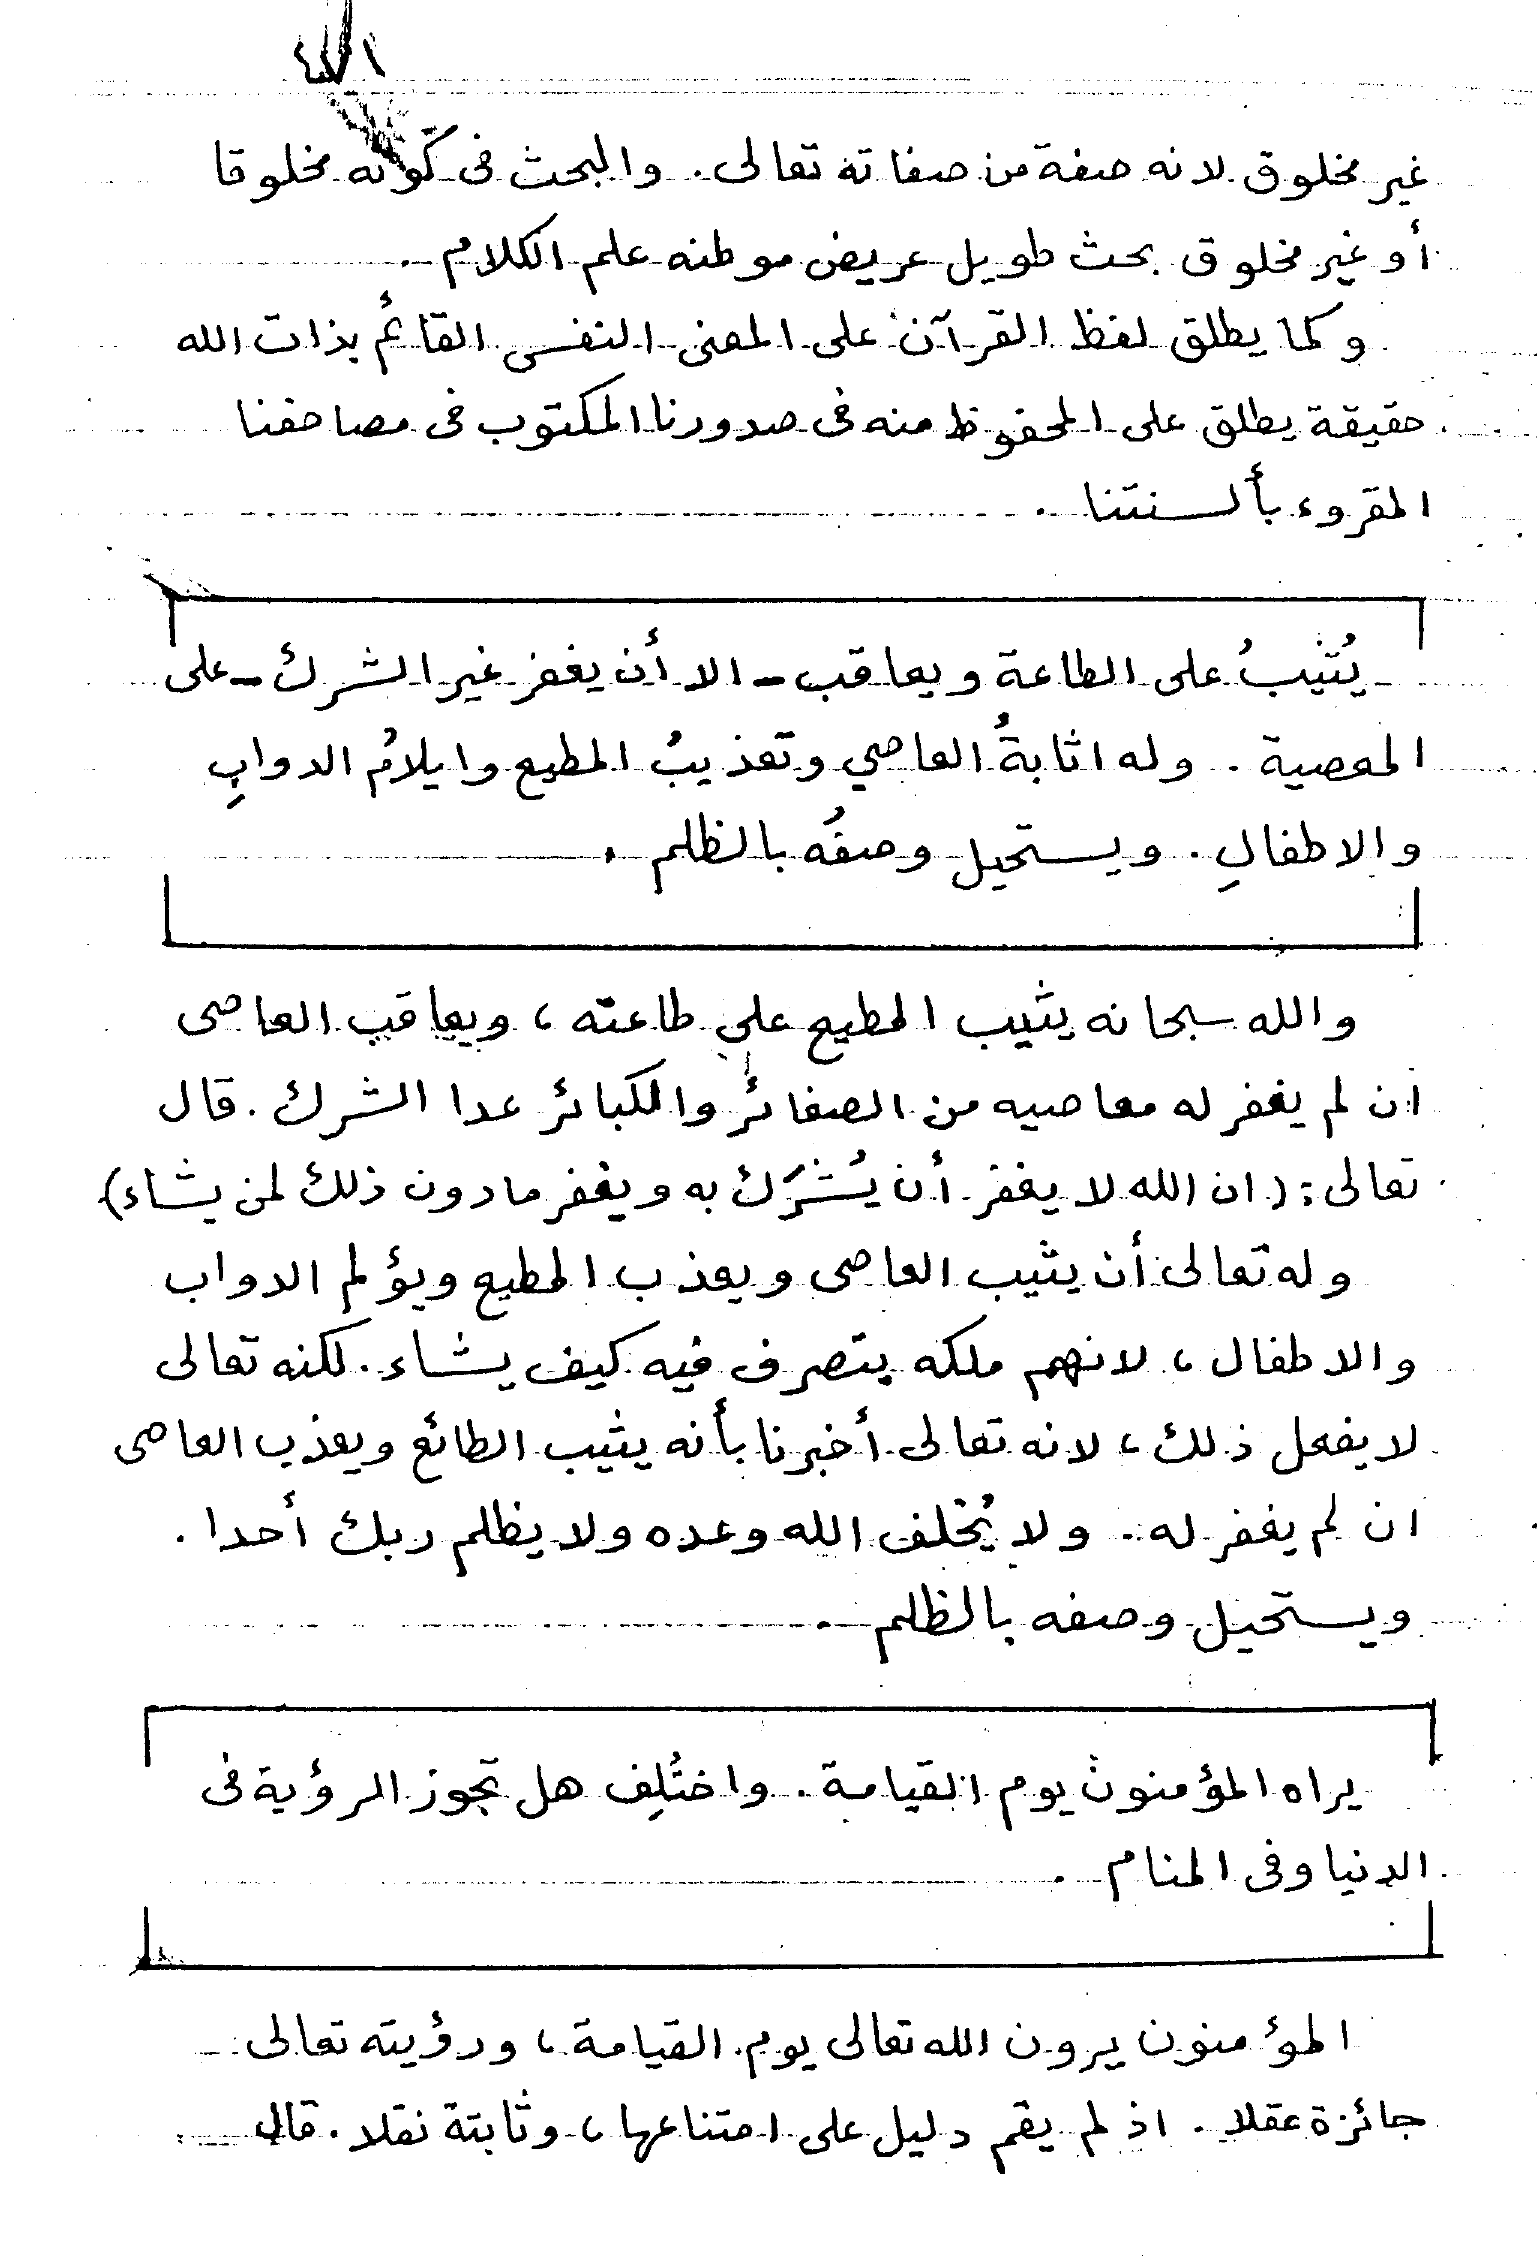 غير مخلوق لانه صفة من صفاته تعالى . والبحث فى كونه مخلوقا
أو غير مخلوق بحث طويل عريض موطنه علم الكلام .
وكما يطلق لفظ القرآن على المعنى النفسى القائم بذات الله
حقيقة يطلق على المحفوظ منه فى صدورنا المكتوب فى مصاحفنا
المقروء بألسنتنا .
يُثيبُ على الطاعة ويعاقب - الا أن يغفر غير الشرك - على
المعصية . وله اثابةُ العاصي وتعذيبُ المطيع وايلامُ الدوابِ
والاطفالِ . ويستحيل وصفُه بالظلم .
والله سبحانه يثيب المطيع على طاعته ، ويعاقب العاصى
ان لم يغفر له معاصيه من الصغائر والكبائر عدا الشرك . قال
تعالى : ( ان الله لا يغفر أن يُشرَك به ويغفر مادون ذلك لمن يشاء )
وله تعالى أن يثيب العاصى ويعذب المطيع ويؤلم الدواب
والاطفال ، لانهم ملكه يتصرف فيه كيف يشاء . لكنه تعالى
لا يفعل ذلك ، لانه تعالى أخبرنا بأنه يثيب الطائع ويعذب العاصى
ان لم يغفر له . ولا يُخلف الله وعده ولا يظلم ربك أحدا .
ويستحيل وصفه بالظلم .
يراه المؤمنون يوم القيامة . واختُلِف هل تجوز الرؤية فى
الدنيا وفى المنام .
المؤمنون يرون الله تعالى يوم القيامة ، ورؤيته تعالى
جائزة عقلا . اذ لم يقم دليل على امتناعها ، وثابتة نقلا . قال